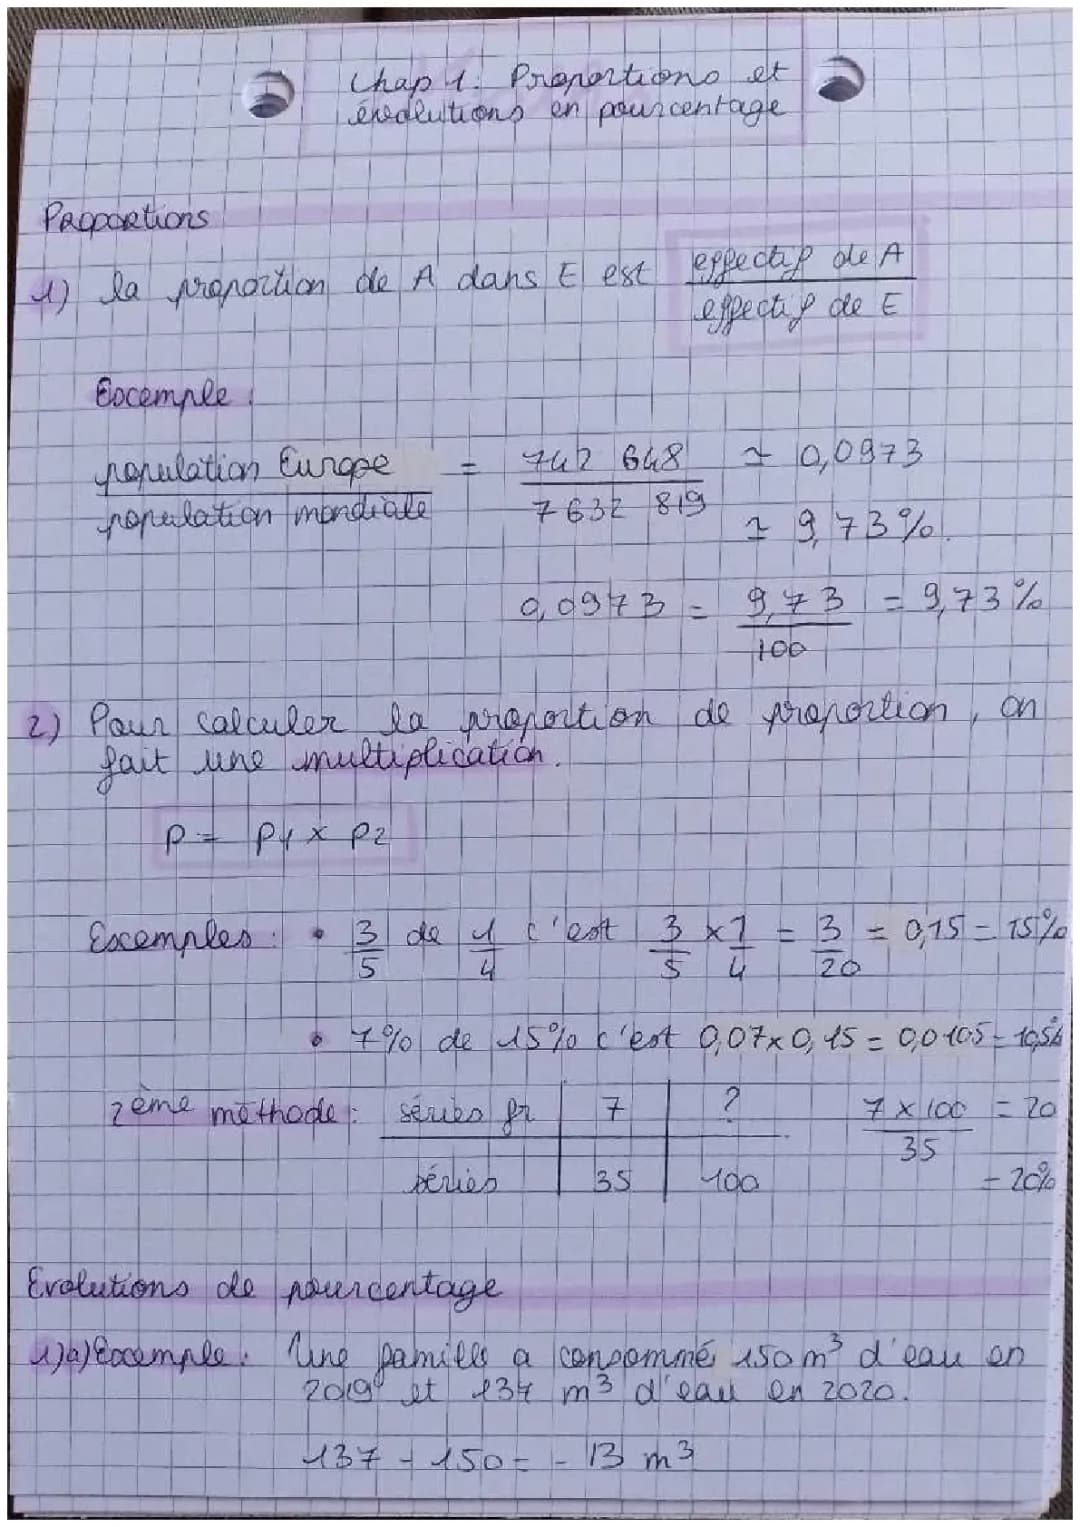 Chap 1. Proportions et
évolutions en pourcentage
Proportions
1) la proportion de A dans E est effectif de A / effectif de E
Exemple :
population Europe / population mondiale = 742 648 / 7 632 819 ≃ 0,0973
≃ 9,73%.
0,0973 = 9,73 / 100 = 9,73%
2) Pour calculer la proportion de proportion, on
fait une multiplication.
P = P1 x P2
Exemples : • 3/5 de 1/4 c'est 3/5 x 1/4 = 3/20 = 0,15 = 15%
• 7% de 15% c'est 0,07 x 0,15 = 0,0105 = 10,5%
2ème méthode : séries fr 7 ? 7 x 100 / 35 = 20
séries 35 100 = 20%
Evolutions de pourcentage
1)a) Exemple : Une famille a consommé 150 m³ d'eau en
2019 et 137 m³ d'eau en 2020.
137 - 150 = - 13 m³